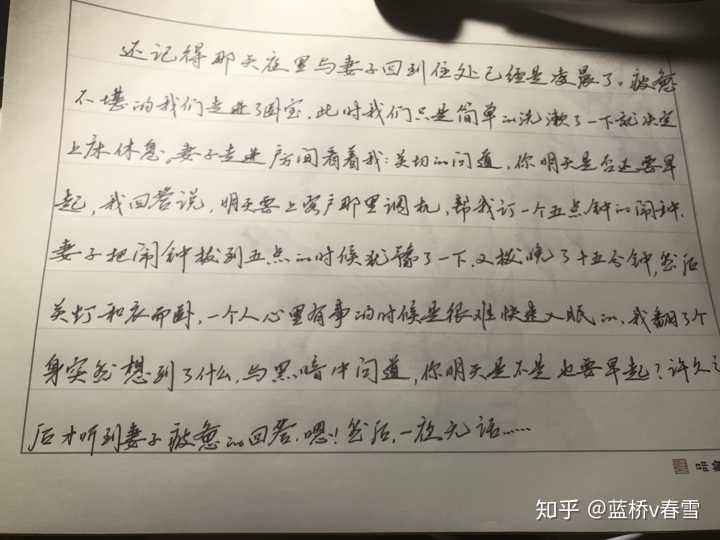 还记得那天夜里与妻子回到住处已经是凌晨了。疲惫
不堪的我们走进了卧室，此时我们只是简单的洗漱了一下就决定
上床休息，妻子走进房间看着我：关切的问道，你明天是否还要早
起，我回答说，明天要上客户那里调机，帮我订一个五点钟的闹钟.
妻子把闹钟拨到五点的时候犹豫了一下.又拨晚了十五分钟，然后
关灯和衣而卧，一个人心里有事的时候是很难快速入眠的，我翻了个
身突然想到了什么，与黑暗中问道，你明天是不是也要早起？许久之
后才听到妻子疲惫的回答.嗯！然后，一夜无话……
知乎 @蓝桥v春雪